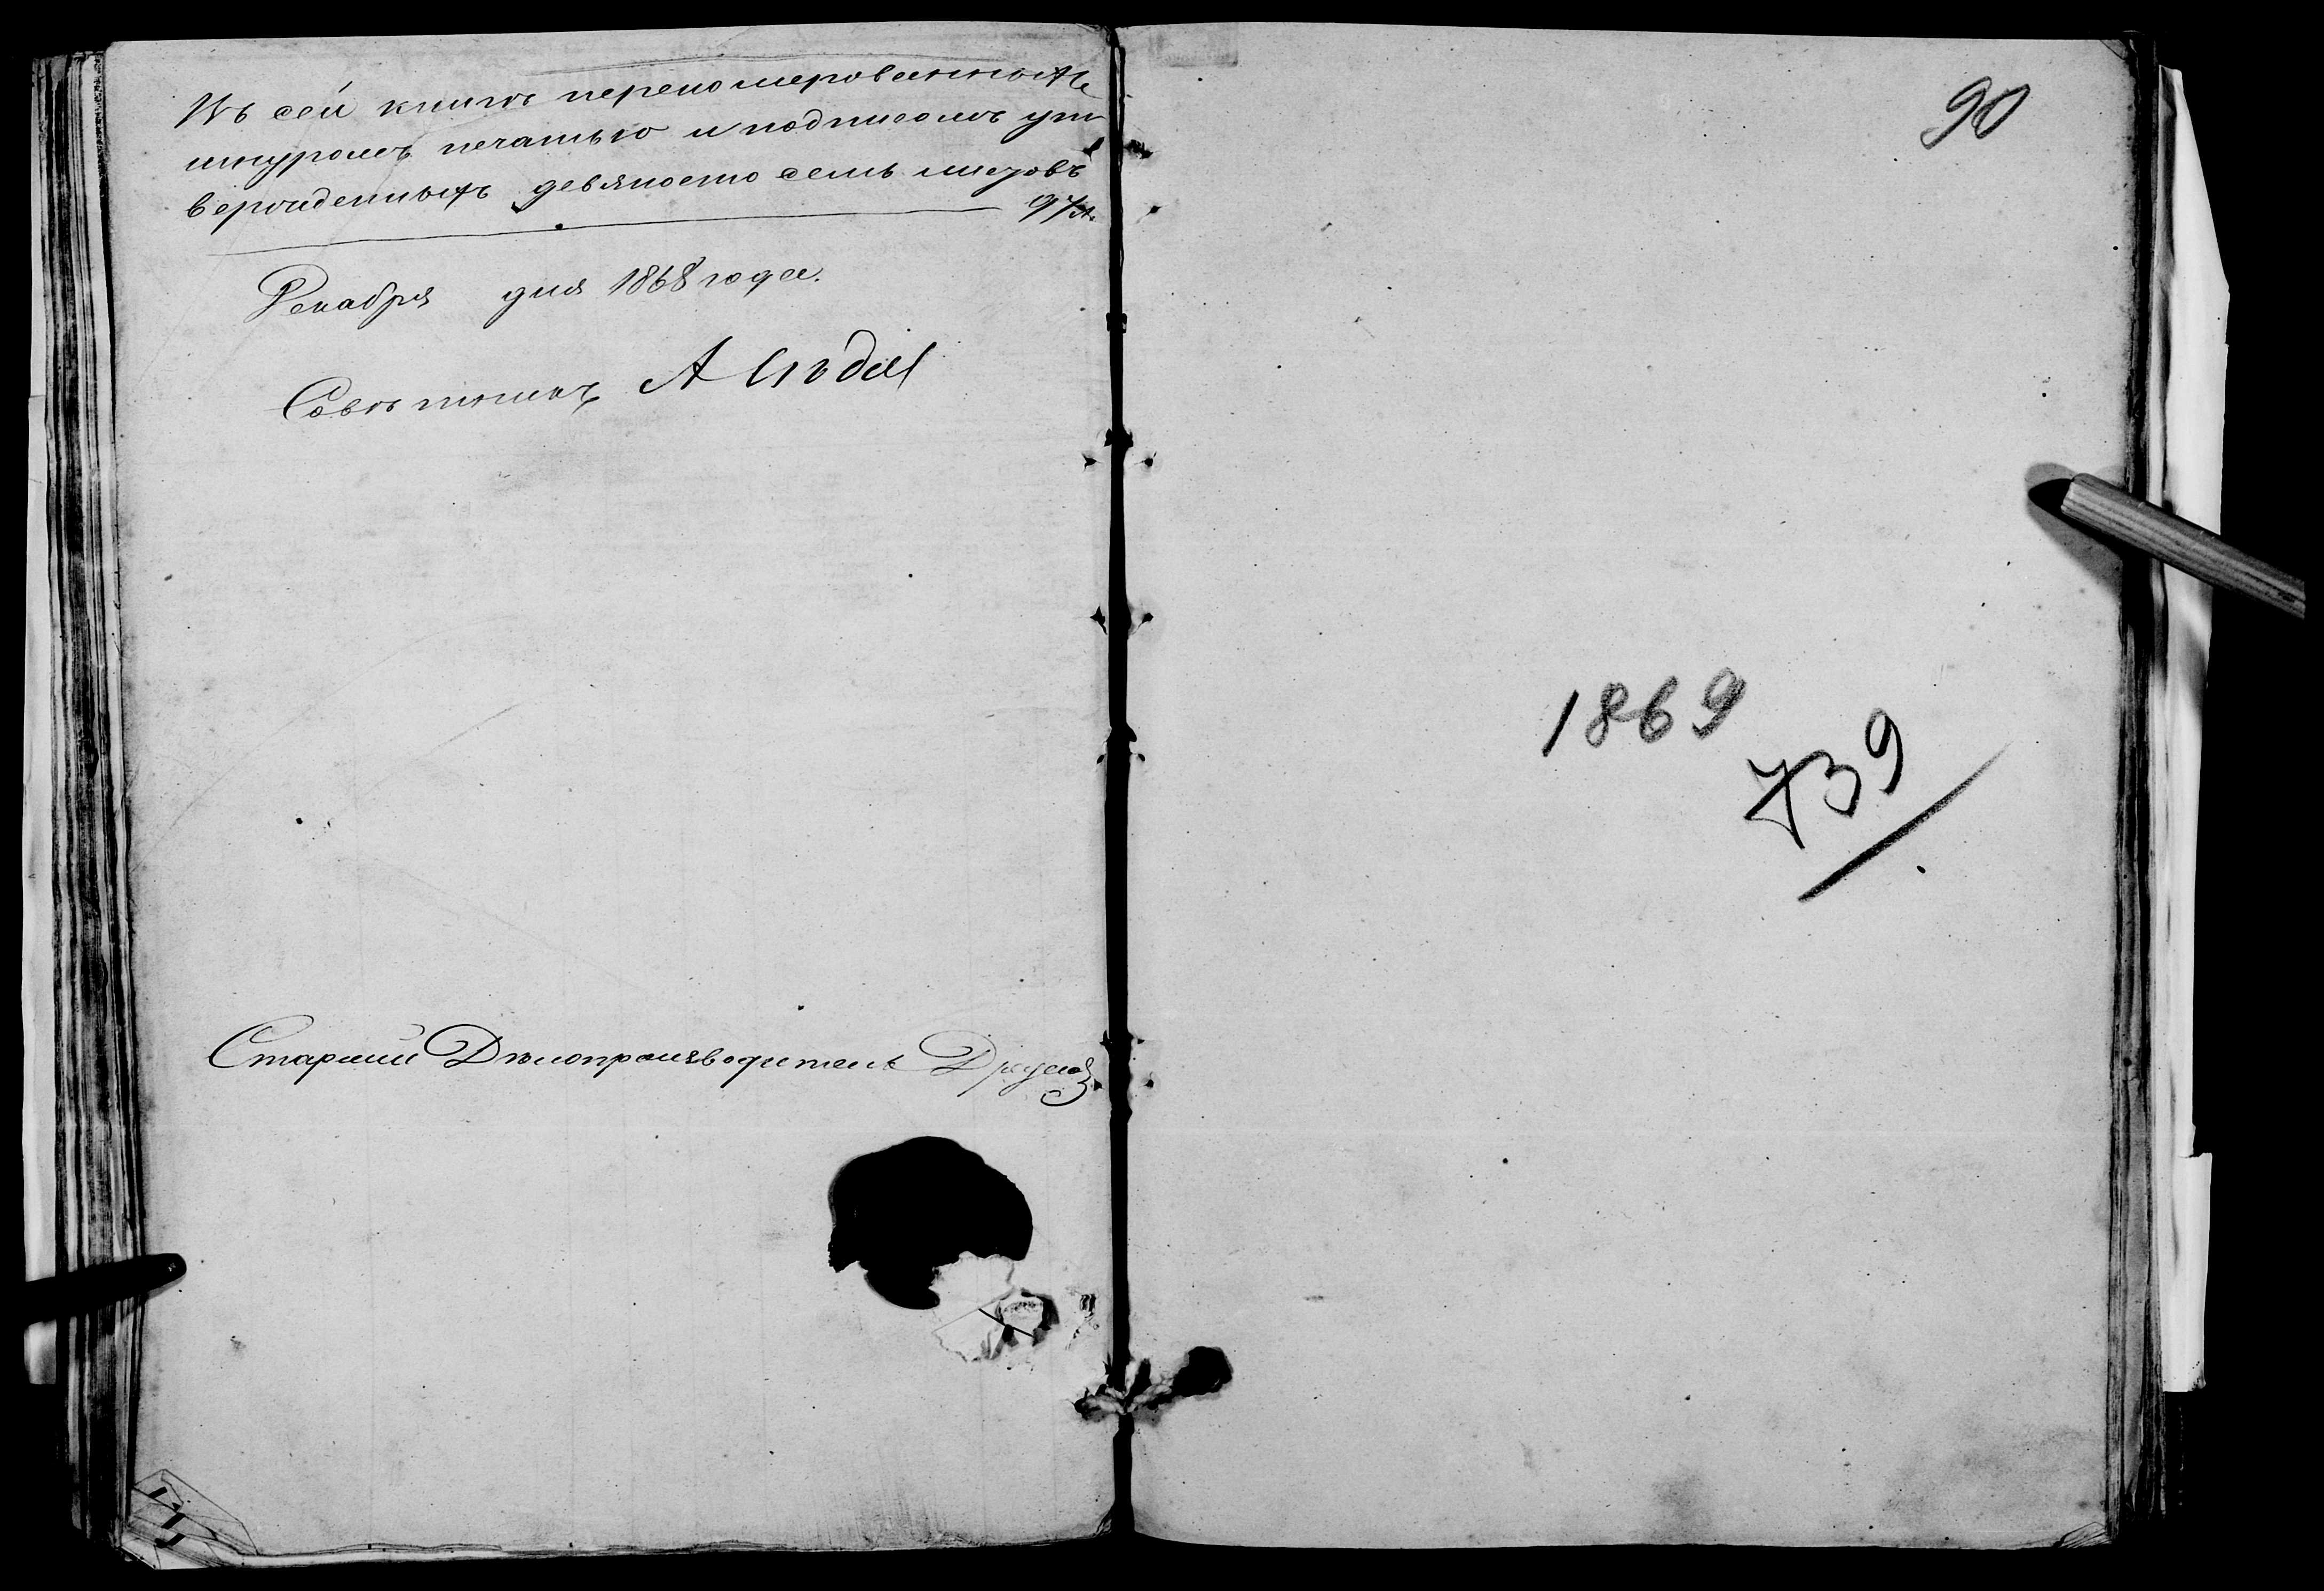 Въ сей книгѣ переномерованныхъ
шнуромъ печатью и подписомъ ут
вержденныхъ девяносто семь листовъ
97 л.
Декабря дня 1868 года.
Совѣтникъ А
Старшій Дѣлопроизводитель
90
1869
739